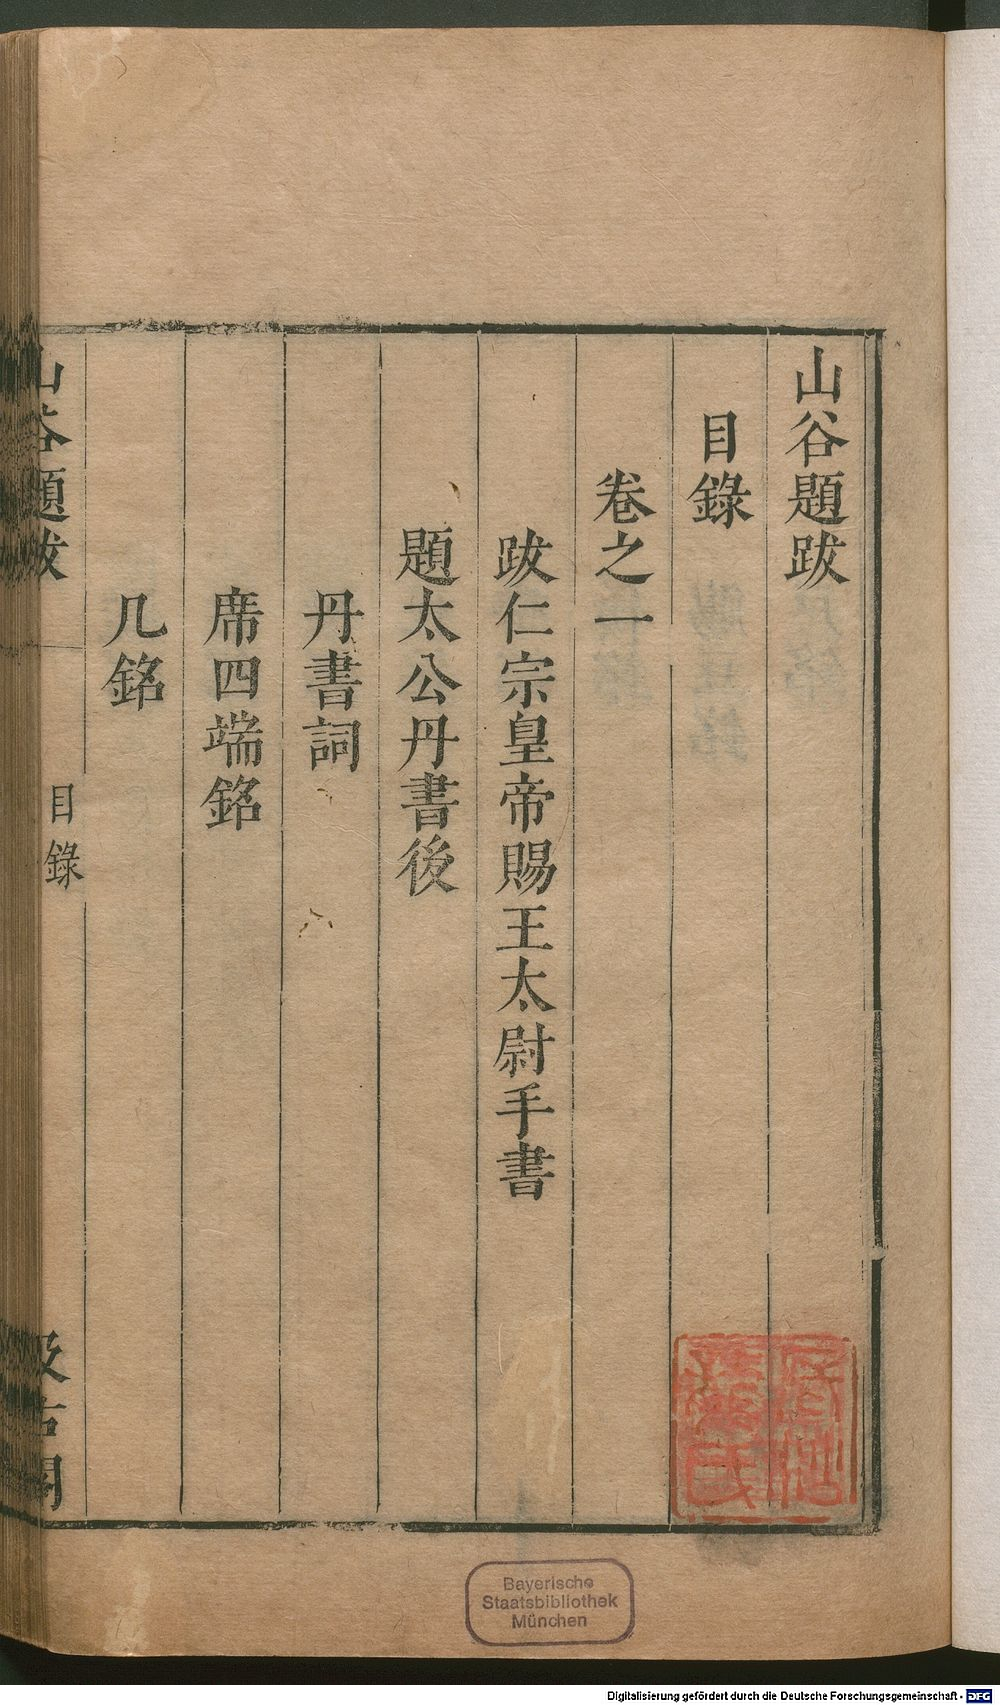 山谷題跋
目錄
卷之一
跋仁宗皇帝賜王太尉手書
題太公丹書後
丹書詞
席四端銘
几銘
山谷題跋
目錄
汲古閣
Bayerische
Staatsbibliothek
München
Digitalisierung gefördert durch die Deutsche Forschungsgemeinschaft - DFG